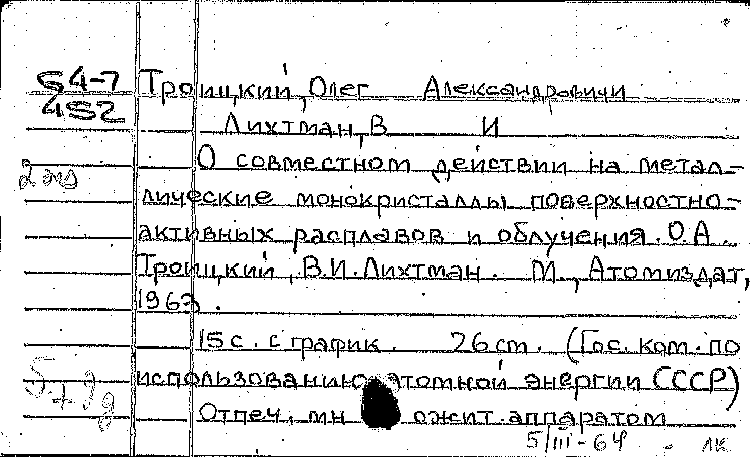 64-7 Троицкий, Олег Александрович и
452
Лихтман, В И
2 экз О совместном действии на метал-
лические монокристаллы поверхностно-
активных расплавов и облучения. О.А.
Троицкий, В.И. Лихтман. М., Атомиздат,
1963.
15 с. с график. 26 cm. (Гос. ком. по
использованию атомной энергии СССР)
Отпеч. мн ожит. аппаратом
5/III-64 лк